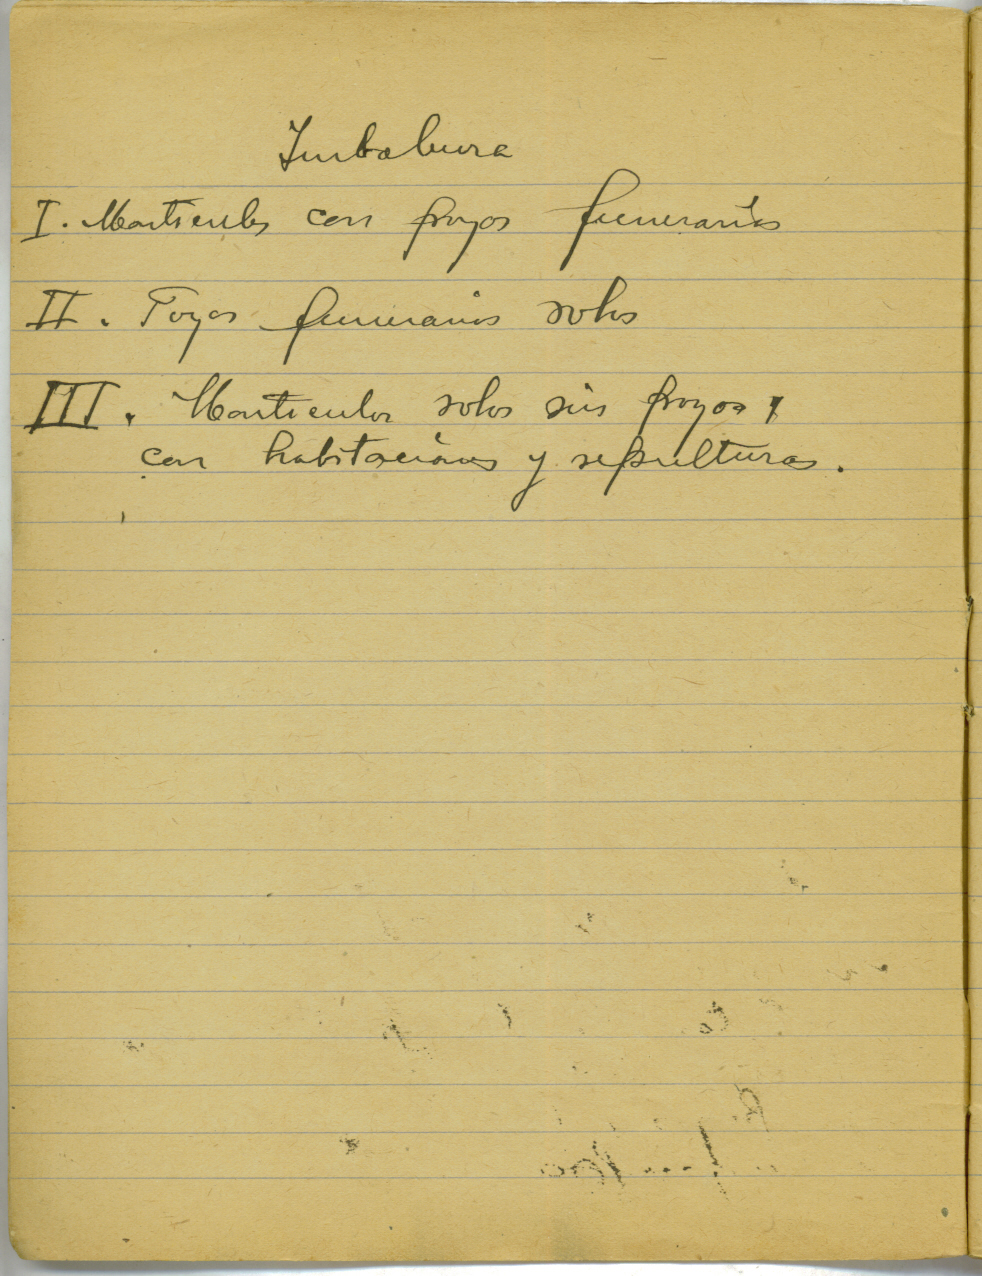 Imbabura
I. Montículos con pozos funerarios
II. Pozos funerarios solos
III. Montículos solos sin pozos,
con habitaciones y sepulturas.